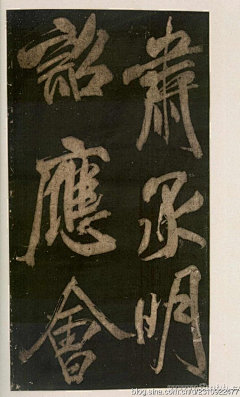 肅承明
詔應會
blog.sina.com.cn/u/2310922477